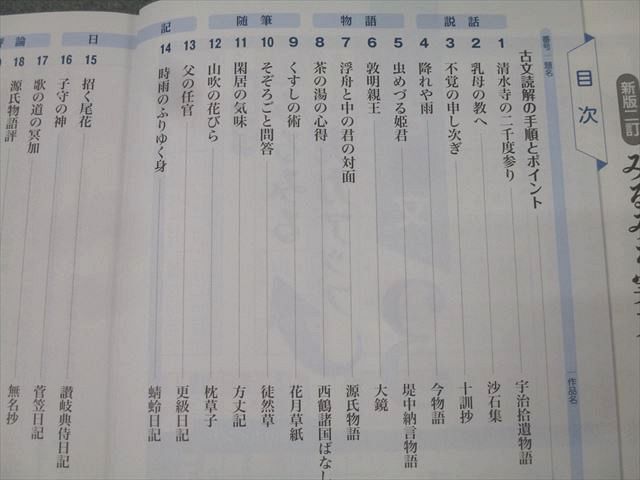 新版二訂
みるみ
目次
番号 題名
作品名
古文読解の手順とポイント
説話
1 清水寺の二千度参り 宇治拾遺物語
2 乳母の教へ 沙石集
3 不覚の申し次ぎ 十訓抄
4 降れや雨 今物語
物語
5 虫めづる姫君 堤中納言物語
6 敦明親王 大鏡
7 浮舟と中の君の対面 源氏物語
8 茶の湯の心得 西鶴諸国ばなし
随筆
9 くすしの術 花月草紙
10 そぞろごと問答 徒然草
11 閑居の気味 方丈記
12 山吹の花びら 枕草子
記
13 父の任官 更級日記
14 時雨のふりゆく身 蜻蛉日記
日
15 招く尾花 讃岐典侍日記
16 子守の神 菅笠日記
論
17 歌の道の冥加 無名抄
18 源氏物語評